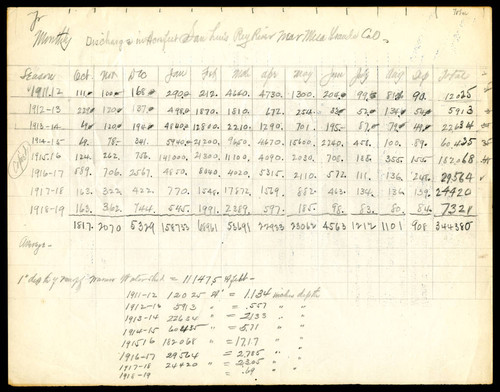 Monthly Discharge in Acrefeet San Luis Rey River near Mesa Grande Cal.
Season Oct. Nov. Dec Jan Feb Mar. Apr May Jun July Aug Sep Total
1911-12 111. 100. 168. 2920. 212. 4660. 4730. 1300. 90. 12025
1912-13 229. 120. 187. 498. 1870. 1810. 672. 254. 52. 134. 54. 5913
1913-14 69. 120. 194. 4840. 12810. 2210. 1290. 701. 195. 87. 79. 22634
1914-15 69. 78. 341. 5940. 21200. 9650. 4670. 15600. 2260. 458. 100. 89. 60435
1915-16 124. 262. 756. 141000. 21300. 11100. 4090. 2020. 708. 188. 355. 155. 182068
1916-17 589. 706. 2567. 4850. 8040. 4020. 5315. 2110. 572. 111. 136. 248. 29564
1917-18 163. 322. 422. 770. 1549. 17872. 1529. 882. 463. 134. 136. 139. 24420
1918-19 163. 362. 744. 545. 1991. 2389. 597. 185. 98. 83. 80. 84. 7321
1817. 2070 5379 158733 68961 53691 22933 23062 4563 1212 1101 908 344380
1" depth = 111475 A feet
1911-12 12025 A' = 1.134 inches depth
1912-13 5913 " = .557 " "
1913-14 22634 " = 2.133 " "
1914-15 60435 " = 5.71 " "
1915-16 182068 " = 17.17 " "
1916-17 29564 " = 2.785 " "
1917-18 24420 " = 2.305 " "
1918-19 " .69 "